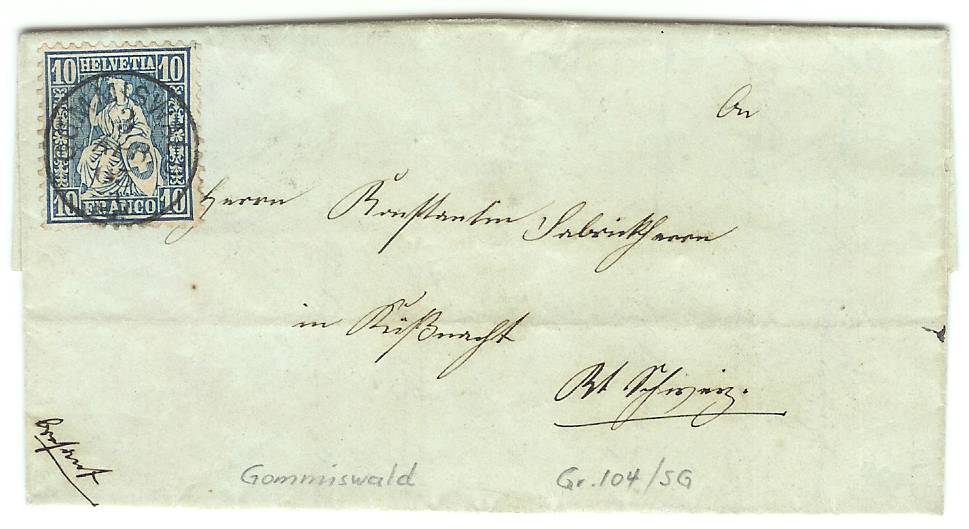 10 HELVETIA 10
10 FRANCO 10
An
Herrn Konstantin Fabrickherrn
in Küßnacht
Kt Schweiz.
Gommiswald Gr. 104/SG